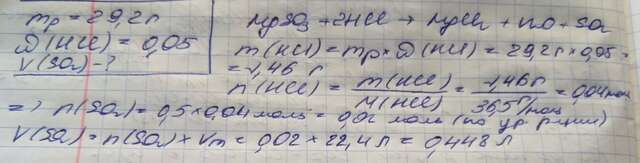 mр = 29,2 г
ω(HCl) = 0,05
V(SO₂) - ?
MgSO₃ + 2HCl → MgCl₂ + H₂O + SO₂
m(HCl) = mр × ω(HCl) = 29,2 г × 0,05 =
= 1,46 г
n(HCl) = m(HCl) / M(HCl) = 1,46 г / 36,5 г/моль = 0,04 моль
=> n(SO₂) = 0,5 × 0,04 моль = 0,02 моль (по ур. р-ции)
V(SO₂) = n(SO₂) × Vm = 0,02 × 22,4 л = 0,448 л